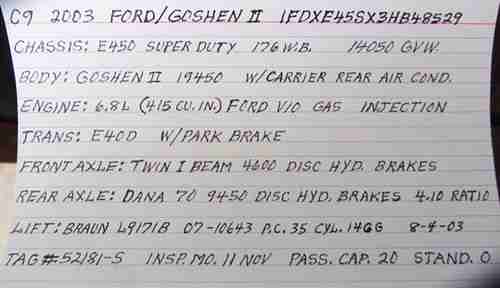 C9 2003 FORD/GOSHEN II 1FDXE45SX3HB48529
CHASSIS: E450 SUPER DUTY 176 W.B. 14050 GVW.
BODY: GOSHEN II 19450 W/CARRIER REAR AIR COND.
ENGINE: 6.8L (415 CU.IN.) FORD V10 GAS INJECTION
TRANS: E40D W/PARK BRAKE
FRONT AXLE: TWIN I BEAM 4600 DISC HYD. BRAKES
REAR AXLE: DANA 70 9450 DISC HYD. BRAKES 4.10 RATIO
LIFT: BRAUN L917IB 07-10643 P.C. 35 CYL. 14GG 8-4-03
TAG # 52181-S INSP. MO. 11 NOV PASS. CAP. 20 STAND. 0